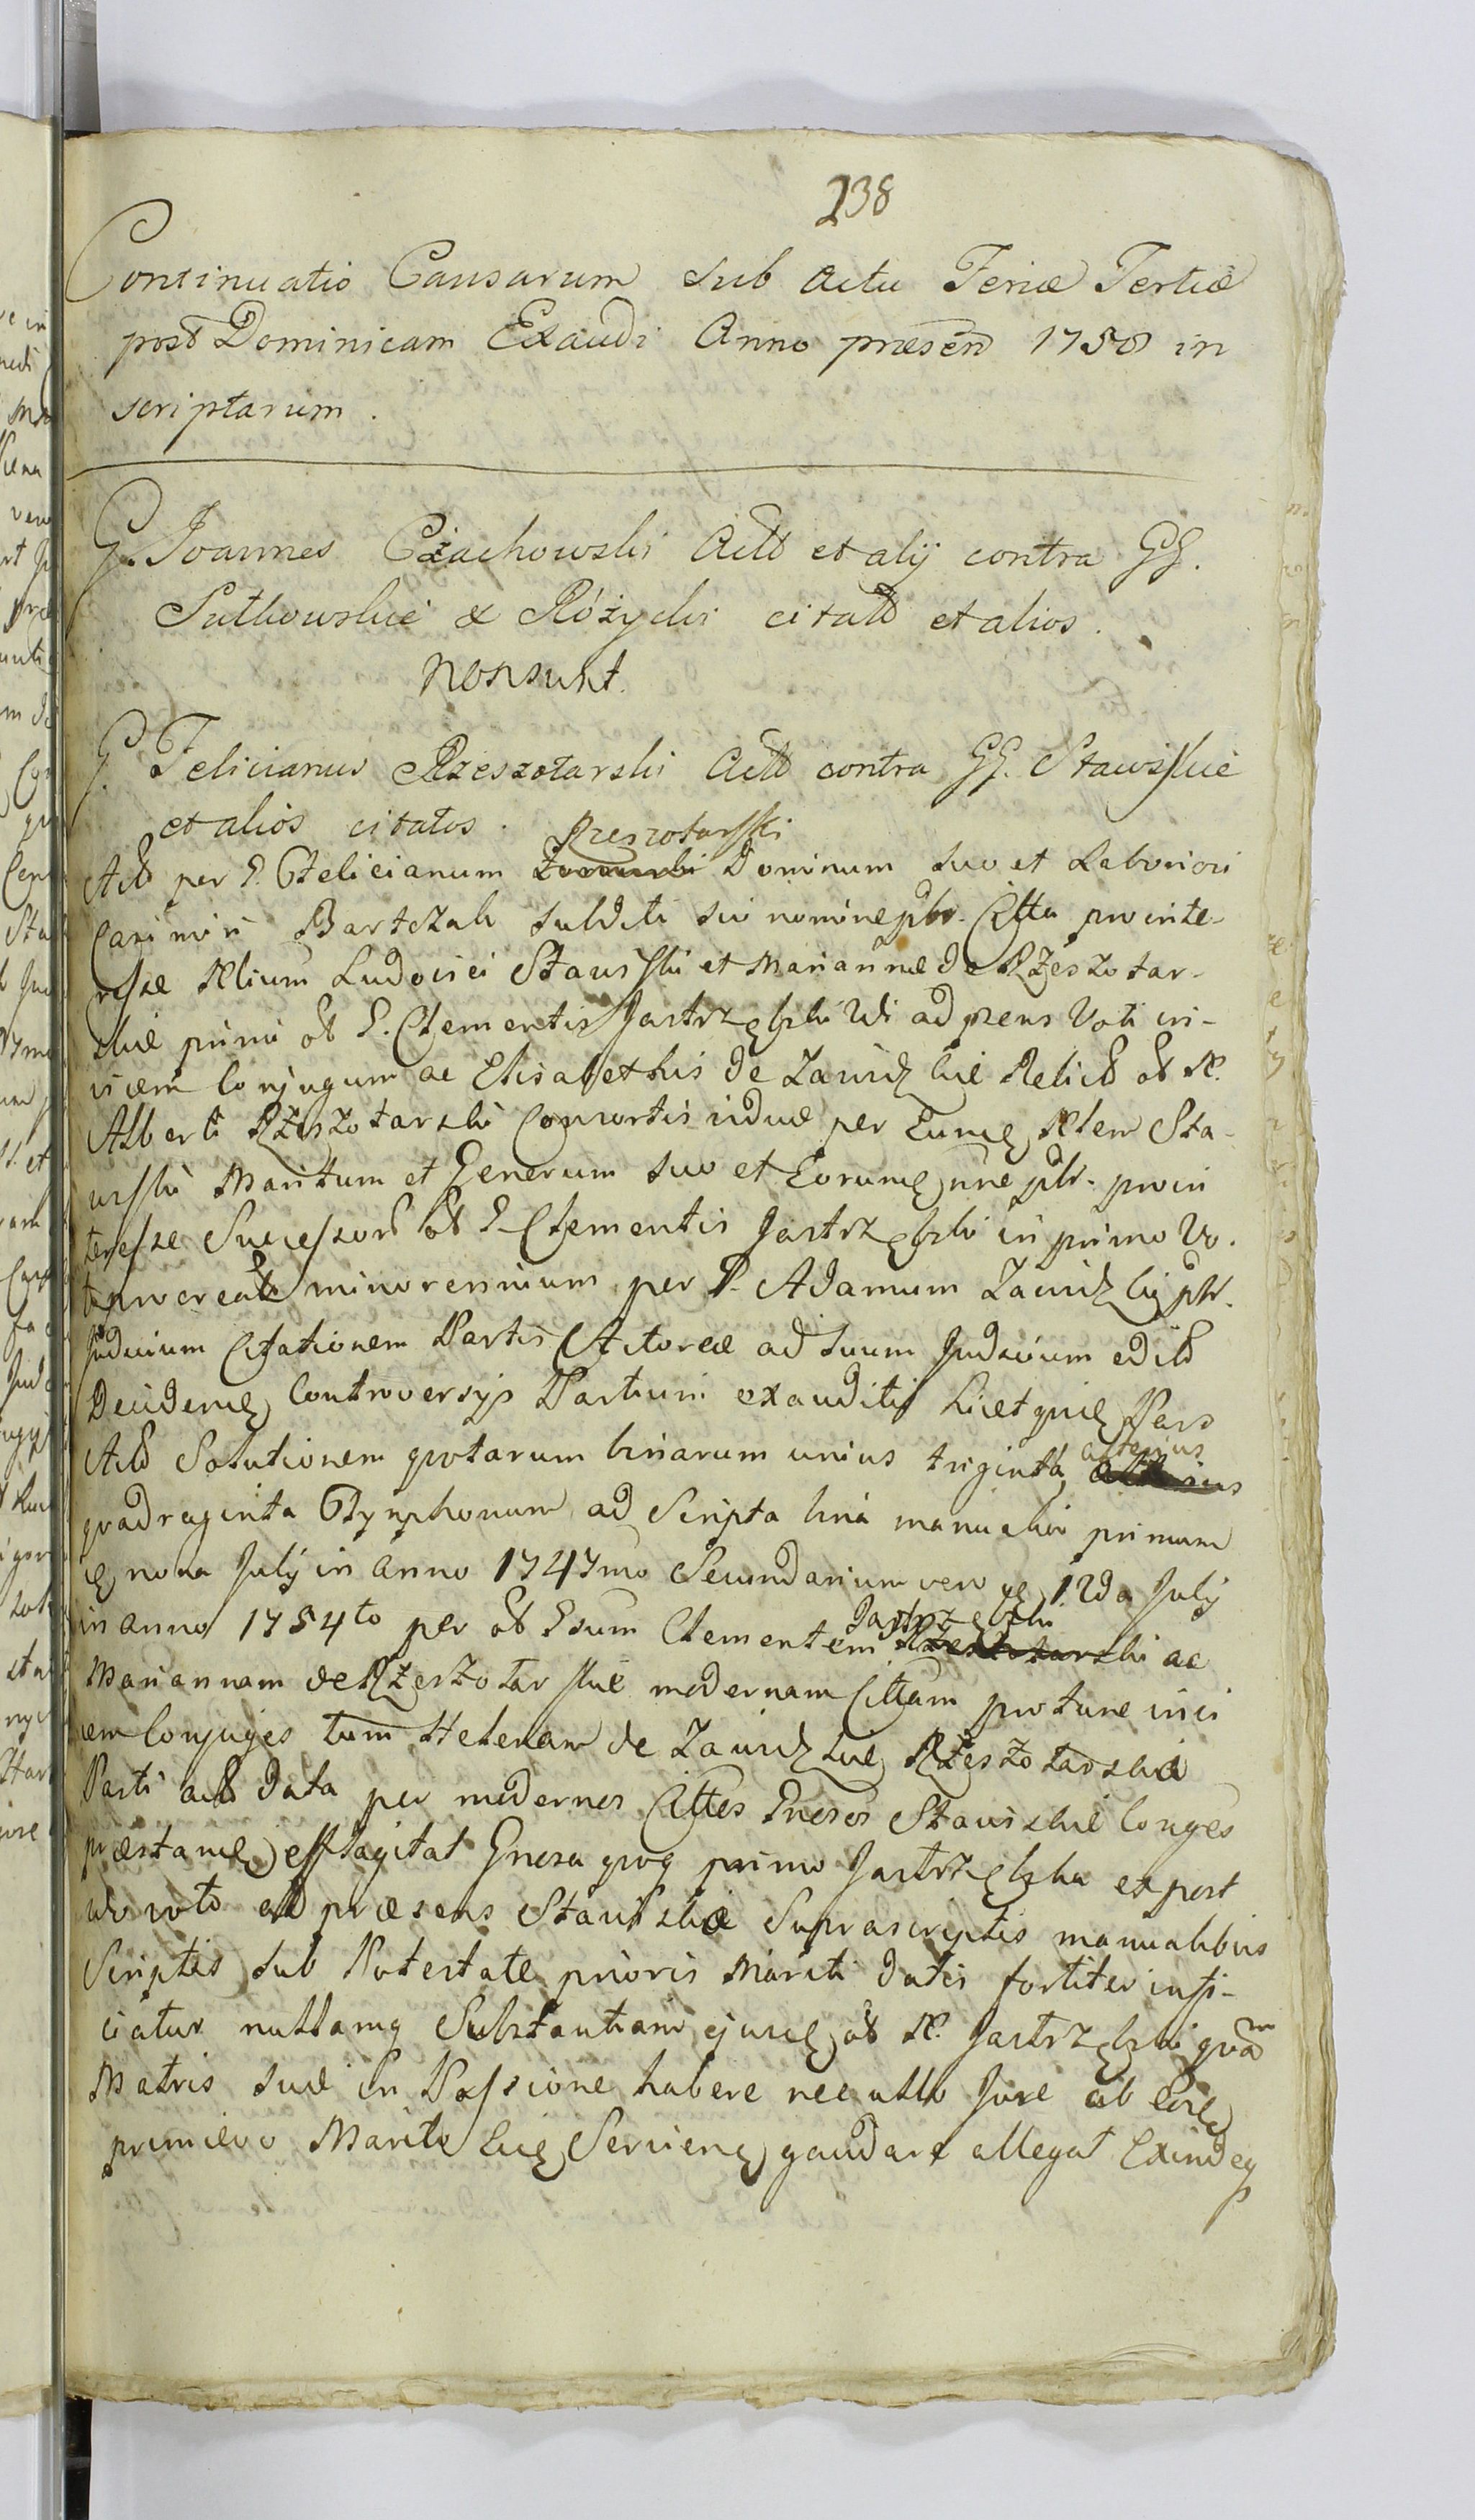 238
Continuatio Causarum sub Actu Feriæ Tertiæ
post Dominicam Exaudi Anno præsen 1758 in
scriptarum.
G. Joannes Czachowski Act et alij contra GG.
Sutkowskie & Różycki citat et alios.
non sunt.
G. Felicianus Rzeszotarski Act contra GG. Stawiskie
et alios citatos.
Rzeszotarski
Act per G. Felicianum Dominum suo et Laboriosi
Casimiri Bartczak subditi sui nomine pbr. Citta pro inte-
resse Nlium Ludovici Stawiski et Mariannæ de Rzeszotar-
skie primi ob G. Clementis Jastrzębski Wdi ad præns Voti in-
vicem Conjugum ac Elisabethis de Zawidzkie Relict ob N.
Alberti Rzeszotarski Consortis viduæ per Eumq Nlem Sta-
wiski Maritum et Generum suo et Eorumq nne pbr. pro in
teresse Successor ob G. Clementis Jastrzębski in primo Vo-
to procreat minorennium per P. Adamum Zawidzki pbr.
Judicium Citationem Partis Actoreæ ad suum Judicium edit
Decidenq Controversijs Partium exauditis Licet quiq Pars
Act Solutionem quotarum binarum unius triginta alterius
quadraginta Tynphonum ad Scripta bina manualia primum
q nona July in anno 1747mo Secundarium vero q 12da July
in anno 1754to per ob Gsum Clementem Jastrzębski ac
Mariannam de Rzeszotarskie modernam Cittam protunc invi
cem Conjuges tum Helenam de Zawidzkie Rzeszotarska
Parti act data per modernos Cittos Gnesos Stawiskie Conges
præstanq efflagitat Gnesa quoq primo Jastrzębska ex post
do voto ad præsens Stawiska Suprascriptis manualibus
Scriptis sub Potestate prioris Mariti datis fortiter infi-
ciatur nullamq Substantiam ejusq ob N. Jastrzębski quam
Matris suæ in Possione habere nec ullo Jure ab Eodq
primævo Marito Suq Servienq gaudare allegat Exindeq